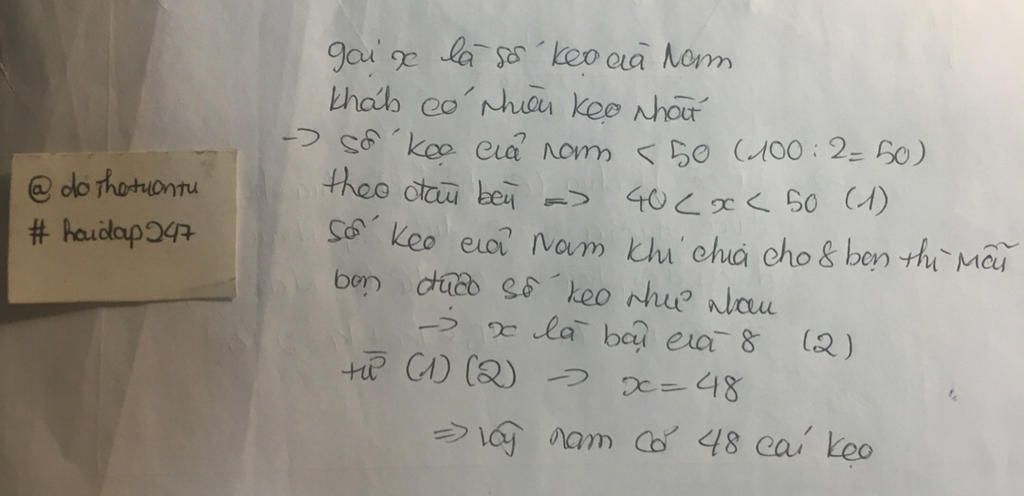 gọi x là số kẹo của Nam
Khánh có nhiều kẹo nhất
-> số kẹo của nam < 50 (100 : 2 = 50)
theo đầu bài => 40 < x < 50 (1)
số kẹo của Nam khi chia cho 8 bạn thì mỗi
bạn được số kẹo như nhau
-> x là bội của 8 (2)
từ (1) (2) -> x = 48
=> Vậy nam có 48 cái kẹo
@ dothatuantu
# hoidap247